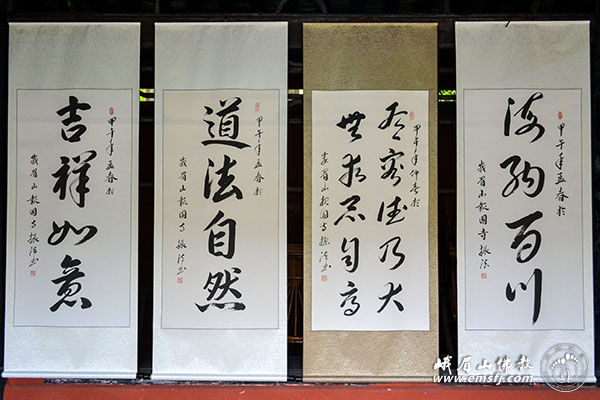 甲午年孟春於
吉祥如意
峨眉山報国寺振法书
甲午年孟春於
道法自然
峨眉山報国寺振法书
甲午年仲春於
有容德乃大
無求品自高
峨眉山報国寺振法书
甲午年孟春於
海纳百川
峨眉山報国寺振法
峨眉山佛教
www.emsfj.com